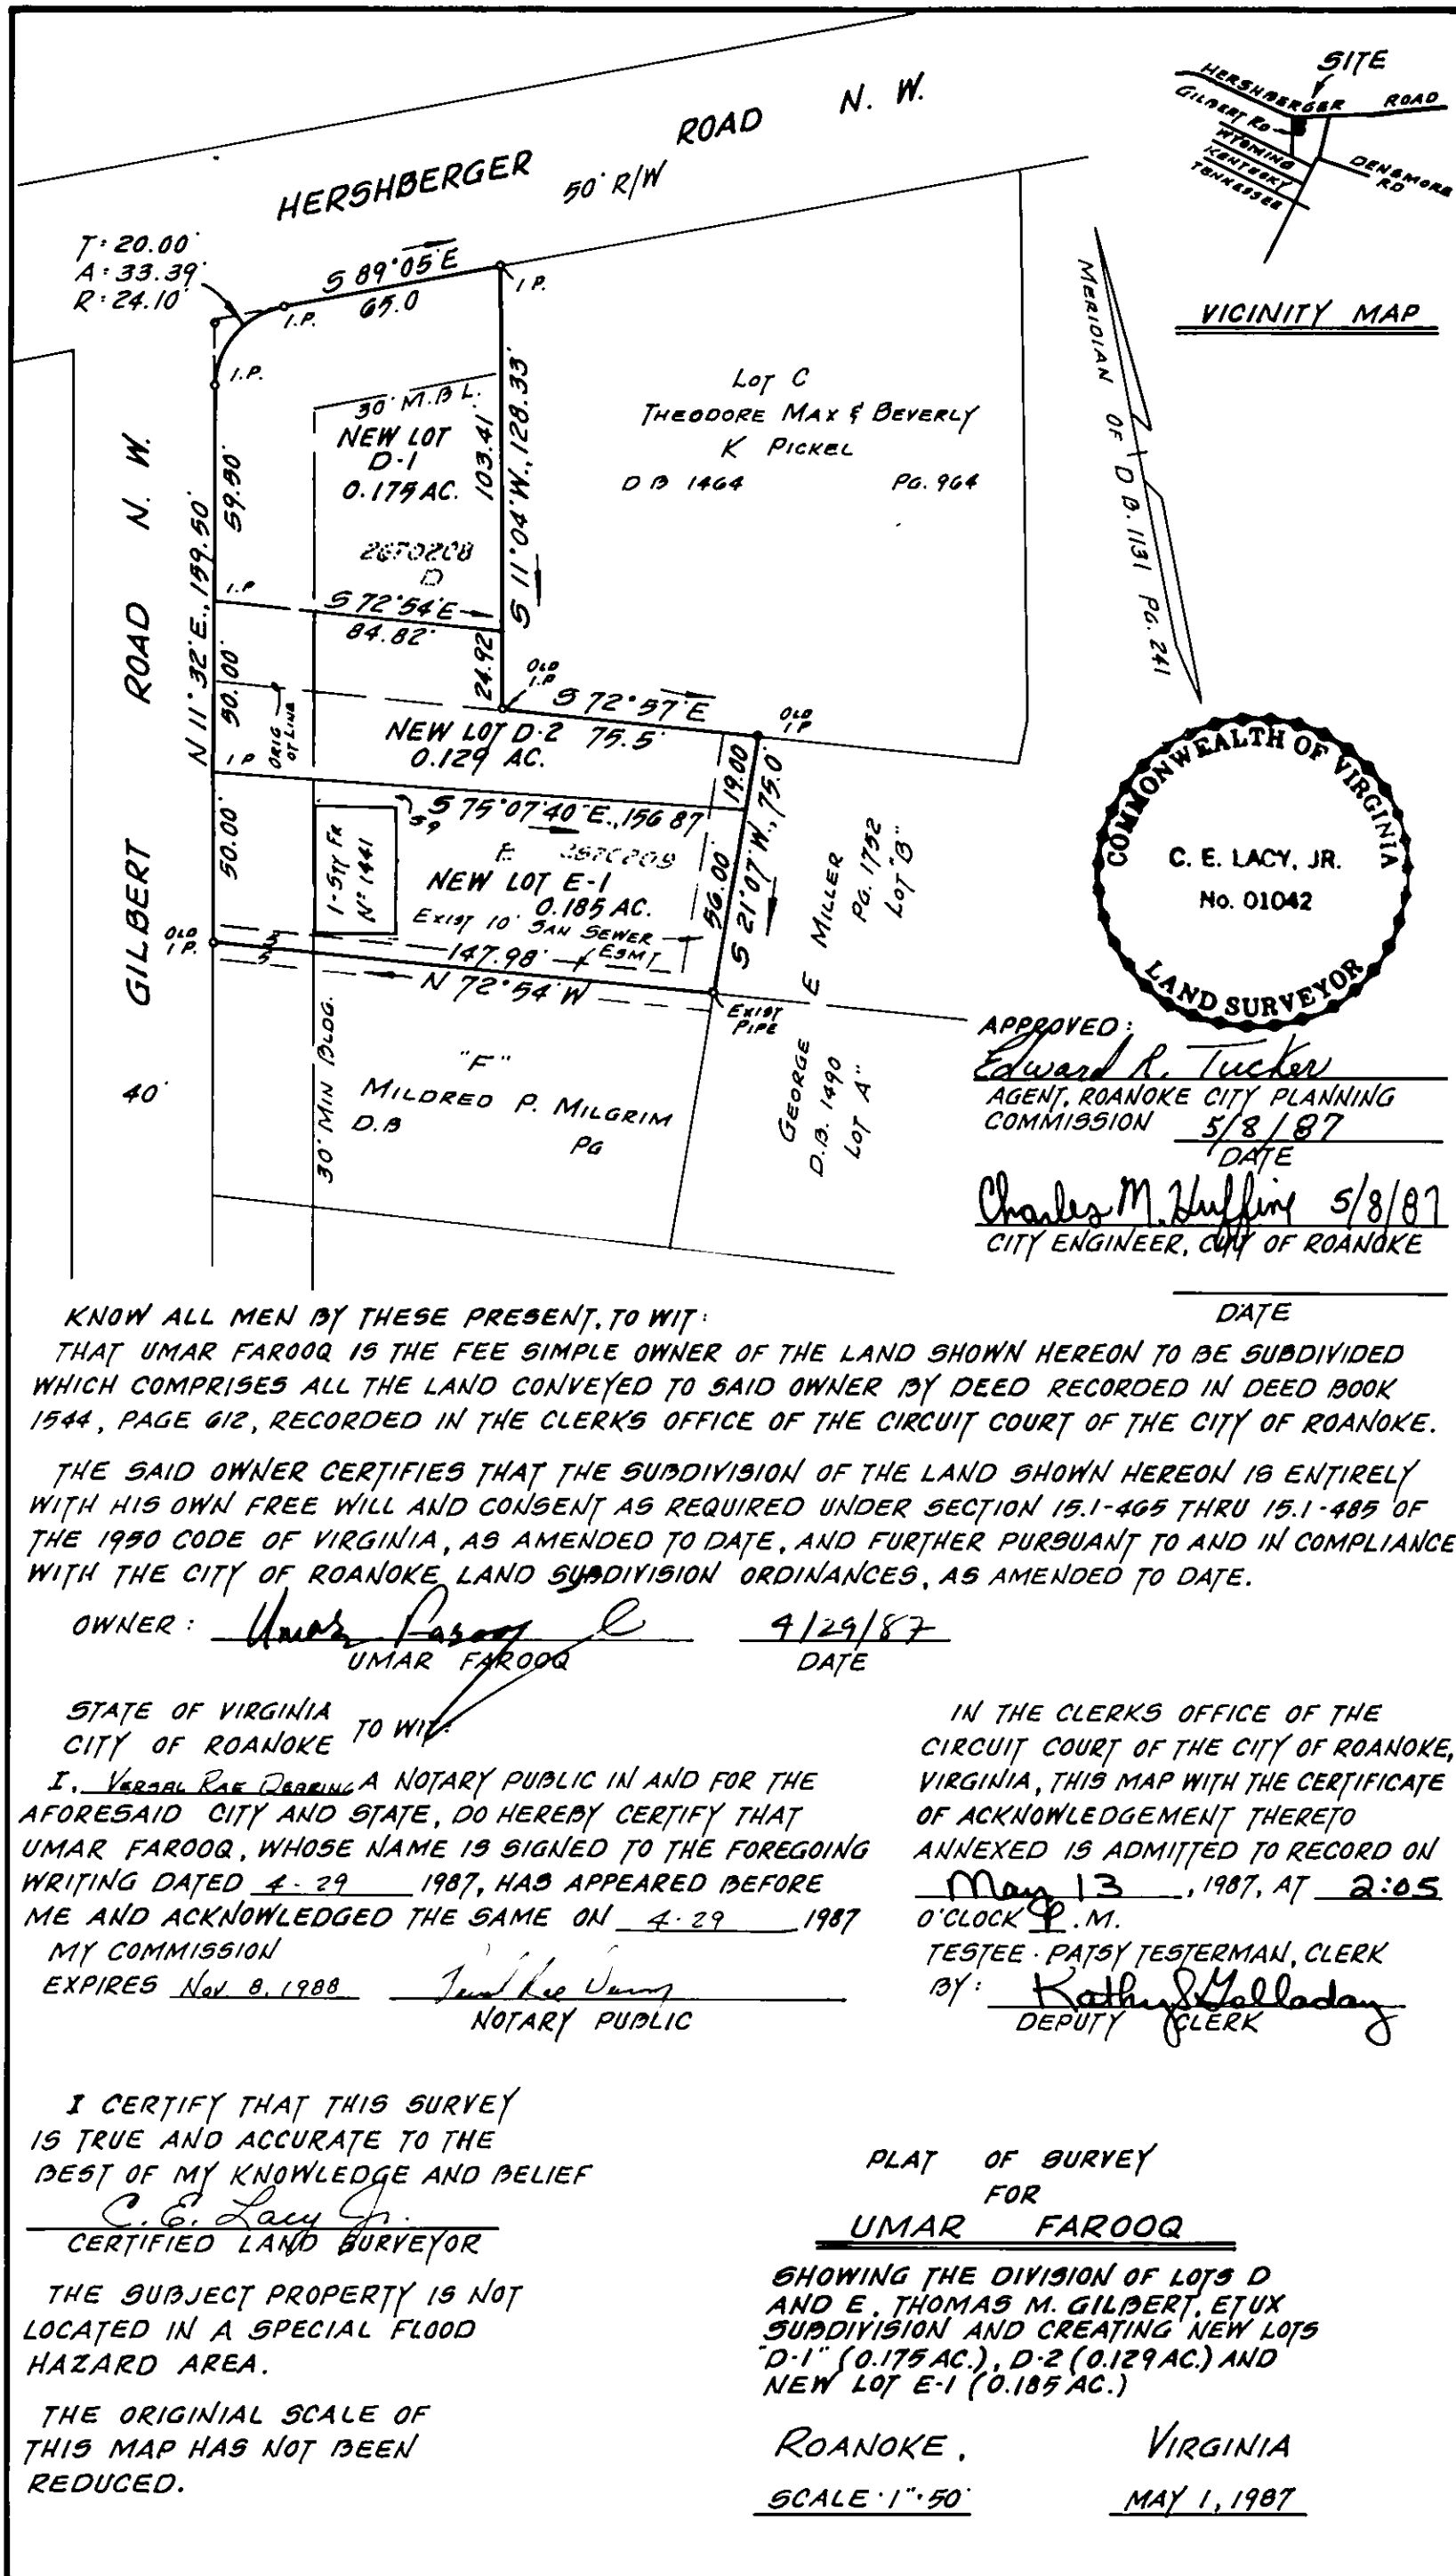 HERSHBERGER ROAD N. W.
50' R/W
SITE
HERSHBERGER ROAD
GILBERT RD
WYOMING
KENTUCKY
TENNESSEE
DENSMORE
RD
VICINITY MAP
MERIDIAN OF D B. 1131 PG. 241
T: 20.00'
A: 33.39'
R: 24.10'
S 89°05' E
65.0
I.P.
I.P.
I.P.
30' M.B L.
NEW LOT
D-1
0.175 AC.
2670208
D
103.41
S 11°04' W., 128.33'
LOT C
THEODORE MAX & BEVERLY
K PICKEL
D B 1464 PG. 964
GILBERT ROAD N. W.
N 11°32' E., 159.50'
59.50'
I.P
S 72°54' E
84.82'
24.92
50.00'
ORIG
OT LINE
OLD
I.P
S 72°57' E
75.5'
OLD
I P
NEW LOT D-2
0.129 AC.
I P
50.00'
S 75°07'40" E., 156 87
59
19.00
S 21°07' W., 75.0'
56.00'
1-STY FR
Nº 1441
E 2670209
NEW LOT E-1
0.185 AC.
EXIST 10' SAN SEWER
ESMT
147.98'
N 72°54' W
OLD
I P.
5
5
EXIST
PIPE
GEORGE E MILLER
D.B. 1490 PG. 1752
LOT A" LOT "B"
40'
30' MIN BLDG.
"F"
MILDRED P. MILGRIM
D.B PG
COMMONWEALTH OF VIRGINIA
C. E. LACY, JR.
No. 01042
LAND SURVEYOR
APPROVED:
Edward R. Tucker
AGENT, ROANOKE CITY PLANNING
COMMISSION 5/8/87
DATE
Charles M. Huffine 5/8/87
CITY ENGINEER, CITY OF ROANOKE
DATE
KNOW ALL MEN BY THESE PRESENT, TO WIT:
THAT UMAR FAROOQ IS THE FEE SIMPLE OWNER OF THE LAND SHOWN HEREON TO BE SUBDIVIDED
WHICH COMPRISES ALL THE LAND CONVEYED TO SAID OWNER BY DEED RECORDED IN DEED BOOK
1544, PAGE 612, RECORDED IN THE CLERKS OFFICE OF THE CIRCUIT COURT OF THE CITY OF ROANOKE.
THE SAID OWNER CERTIFIES THAT THE SUBDIVISION OF THE LAND SHOWN HEREON IS ENTIRELY
WITH HIS OWN FREE WILL AND CONSENT AS REQUIRED UNDER SECTION 15.1-465 THRU 15.1-485 OF
THE 1950 CODE OF VIRGINIA, AS AMENDED TO DATE, AND FURTHER PURSUANT TO AND IN COMPLIANCE
WITH THE CITY OF ROANOKE LAND SUBDIVISION ORDINANCES, AS AMENDED TO DATE.
OWNER: Umar Farooq 4/29/87
UMAR FAROOQ DATE
STATE OF VIRGINIA
CITY OF ROANOKE TO WIT:
I, VERSAL RAE DEARING A NOTARY PUBLIC IN AND FOR THE
AFORESAID CITY AND STATE, DO HEREBY CERTIFY THAT
UMAR FAROOQ, WHOSE NAME IS SIGNED TO THE FOREGOING
WRITING DATED 4-29 1987, HAS APPEARED BEFORE
ME AND ACKNOWLEDGED THE SAME ON 4-29 1987
MY COMMISSION
EXPIRES Nov. 8, 1988
NOTARY PUBLIC
IN THE CLERKS OFFICE OF THE
CIRCUIT COURT OF THE CITY OF ROANOKE,
VIRGINIA, THIS MAP WITH THE CERTIFICATE
OF ACKNOWLEDGEMENT THERETO
ANNEXED IS ADMITTED TO RECORD ON
May 13, 1987, AT 2:05
O'CLOCK P.M.
TESTEE: PATSY TESTERMAN, CLERK
BY: Kathy S Golladay
DEPUTY CLERK
I CERTIFY THAT THIS SURVEY
IS TRUE AND ACCURATE TO THE
BEST OF MY KNOWLEDGE AND BELIEF
C. E. Lacy Jr.
CERTIFIED LAND SURVEYOR
THE SUBJECT PROPERTY IS NOT
LOCATED IN A SPECIAL FLOOD
HAZARD AREA.
THE ORIGINIAL SCALE OF
THIS MAP HAS NOT BEEN
REDUCED.
PLAT OF SURVEY
FOR
UMAR FAROOQ
SHOWING THE DIVISION OF LOTS D
AND E, THOMAS M. GILBERT, ETUX
SUBDIVISION AND CREATING NEW LOTS
"D-1" (0.175 AC.), D-2 (0.129 AC.) AND
NEW LOT E-1 (0.185 AC.)
ROANOKE, VIRGINIA
SCALE: 1"=50' MAY 1, 1987